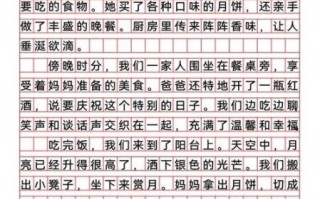 要吃的食物。她买了各种口味的月饼，还亲手
做了丰盛的晚餐。厨房里传来阵阵香味，让人
垂涎欲滴。
傍晚时分，我们一家人围坐在餐桌旁，享
受着妈妈准备的美食。爸爸还特地开了一瓶红
酒，说要庆祝这个特别的日子。我们边吃边聊
笑声和谈话声交织在一起，充满了温馨和幸福
吃完饭，我们来到了阳台上。天空中，月
亮已经升得很高了，洒下银色的光芒。我们搬
出小凳子，坐下来赏月。妈妈拿出月饼，切成